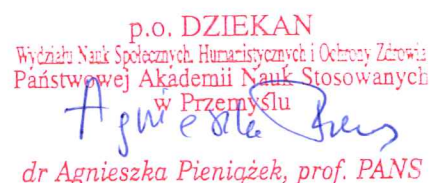 p.o. DZIEKAN
Wydziału Nauk Społecznych, Humanistycznych i Ochrony Zdrowia
Państwowej Akademii Nauk Stosowanych
w Przemyślu
Agnieszka
dr Agnieszka Pieniążek, prof. PANS